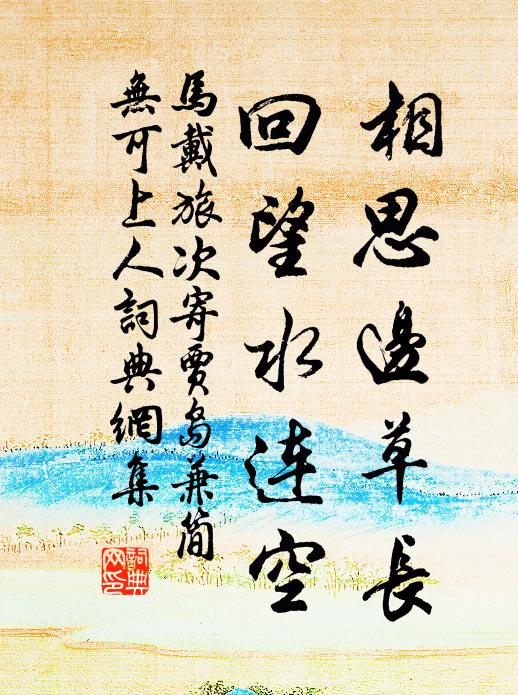 相思邊草長
回望水連空
馬戴旅次寄賈島兼简
無可上人詞典網集
詞典
网印